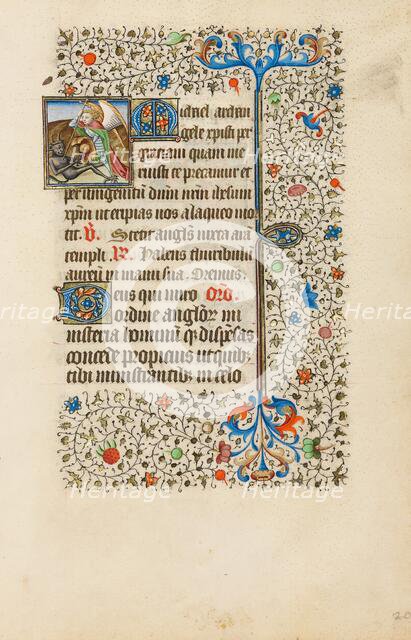 Michael archan
gele xpisti per
gratiam quam me
ruisti te precamur et
per unigenitum dnm nrm ihesum
xpm ut eripias nos a laqueo mor
tis ℣ Stetit anglus iuxta ara
templi ℟ Habens thuribulu
aureu in manu sua Oremus
Deus qui miro Oro
ordine anglor mi
nisteria hominuq dispesas
concede propicius ut quib
tibi ministrantib in celo
Heritage
Heritage
Heritage